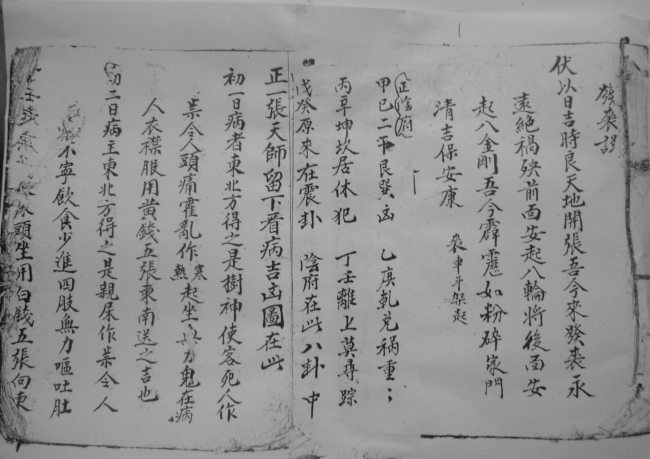 發喪謬
伏以日吉時良天地開張吾今來發喪永
遠絕禍殃前面安起八輪將後面安
起八金剛吾今霹靂如粉碎家門
清吉保安康
喪車斗架起
正陰府
甲己二干艮巽凶 乙庚乾兑禍重
丙辛坤坎居休犯 丁壬離上莫尋踪
戊癸原來在震卦 陰府在此八卦中
正一張天師留下看病吉凶圖在此
初一日病者東北方得之是樹神使客死人作
祟令人頭痛霍亂作寒熱起坐無力鬼在病
人衣襟服用黄錢五張東南送之吉也
初二日病主東北方得之是親屬作祟令人
不寧飲食少進四肢無力嘔吐肚
頭坐用白錢五張向東